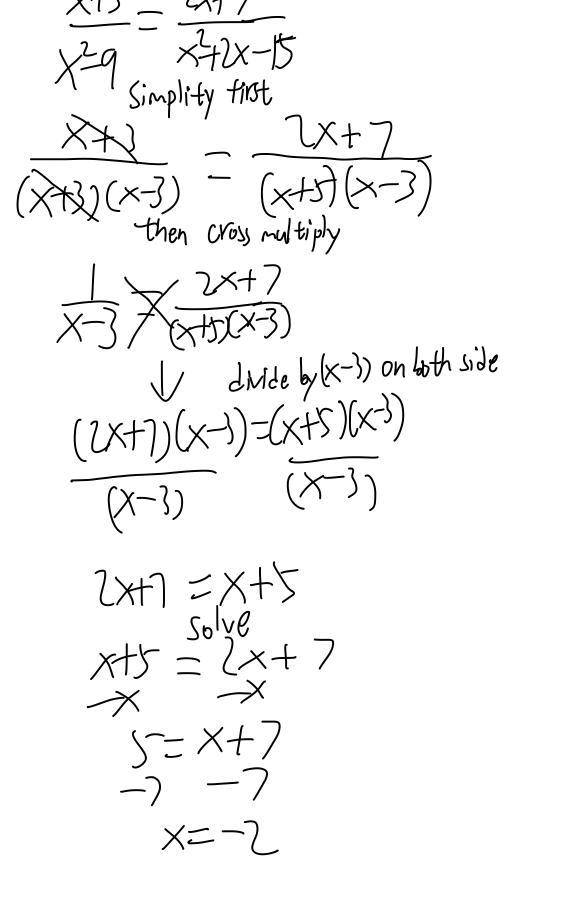 x+3 / x²-9 = 2x+7 / x²+2x-15
Simplity first
x+3 / (x+3)(x-3) = 2x+7 / (x+5)(x-3)
then cross multiply
1 / x-3 = 2x+7 / (x+5)(x-3)
↓ divide by (x-3) on both side
(2x+7)(x-3) / (x-3) = (x+5)(x-3) / (x-3)
2x+7 = x+5
solve
x+5 = 2x+7
-x -x
5 = x+7
-7 -7
x=-2